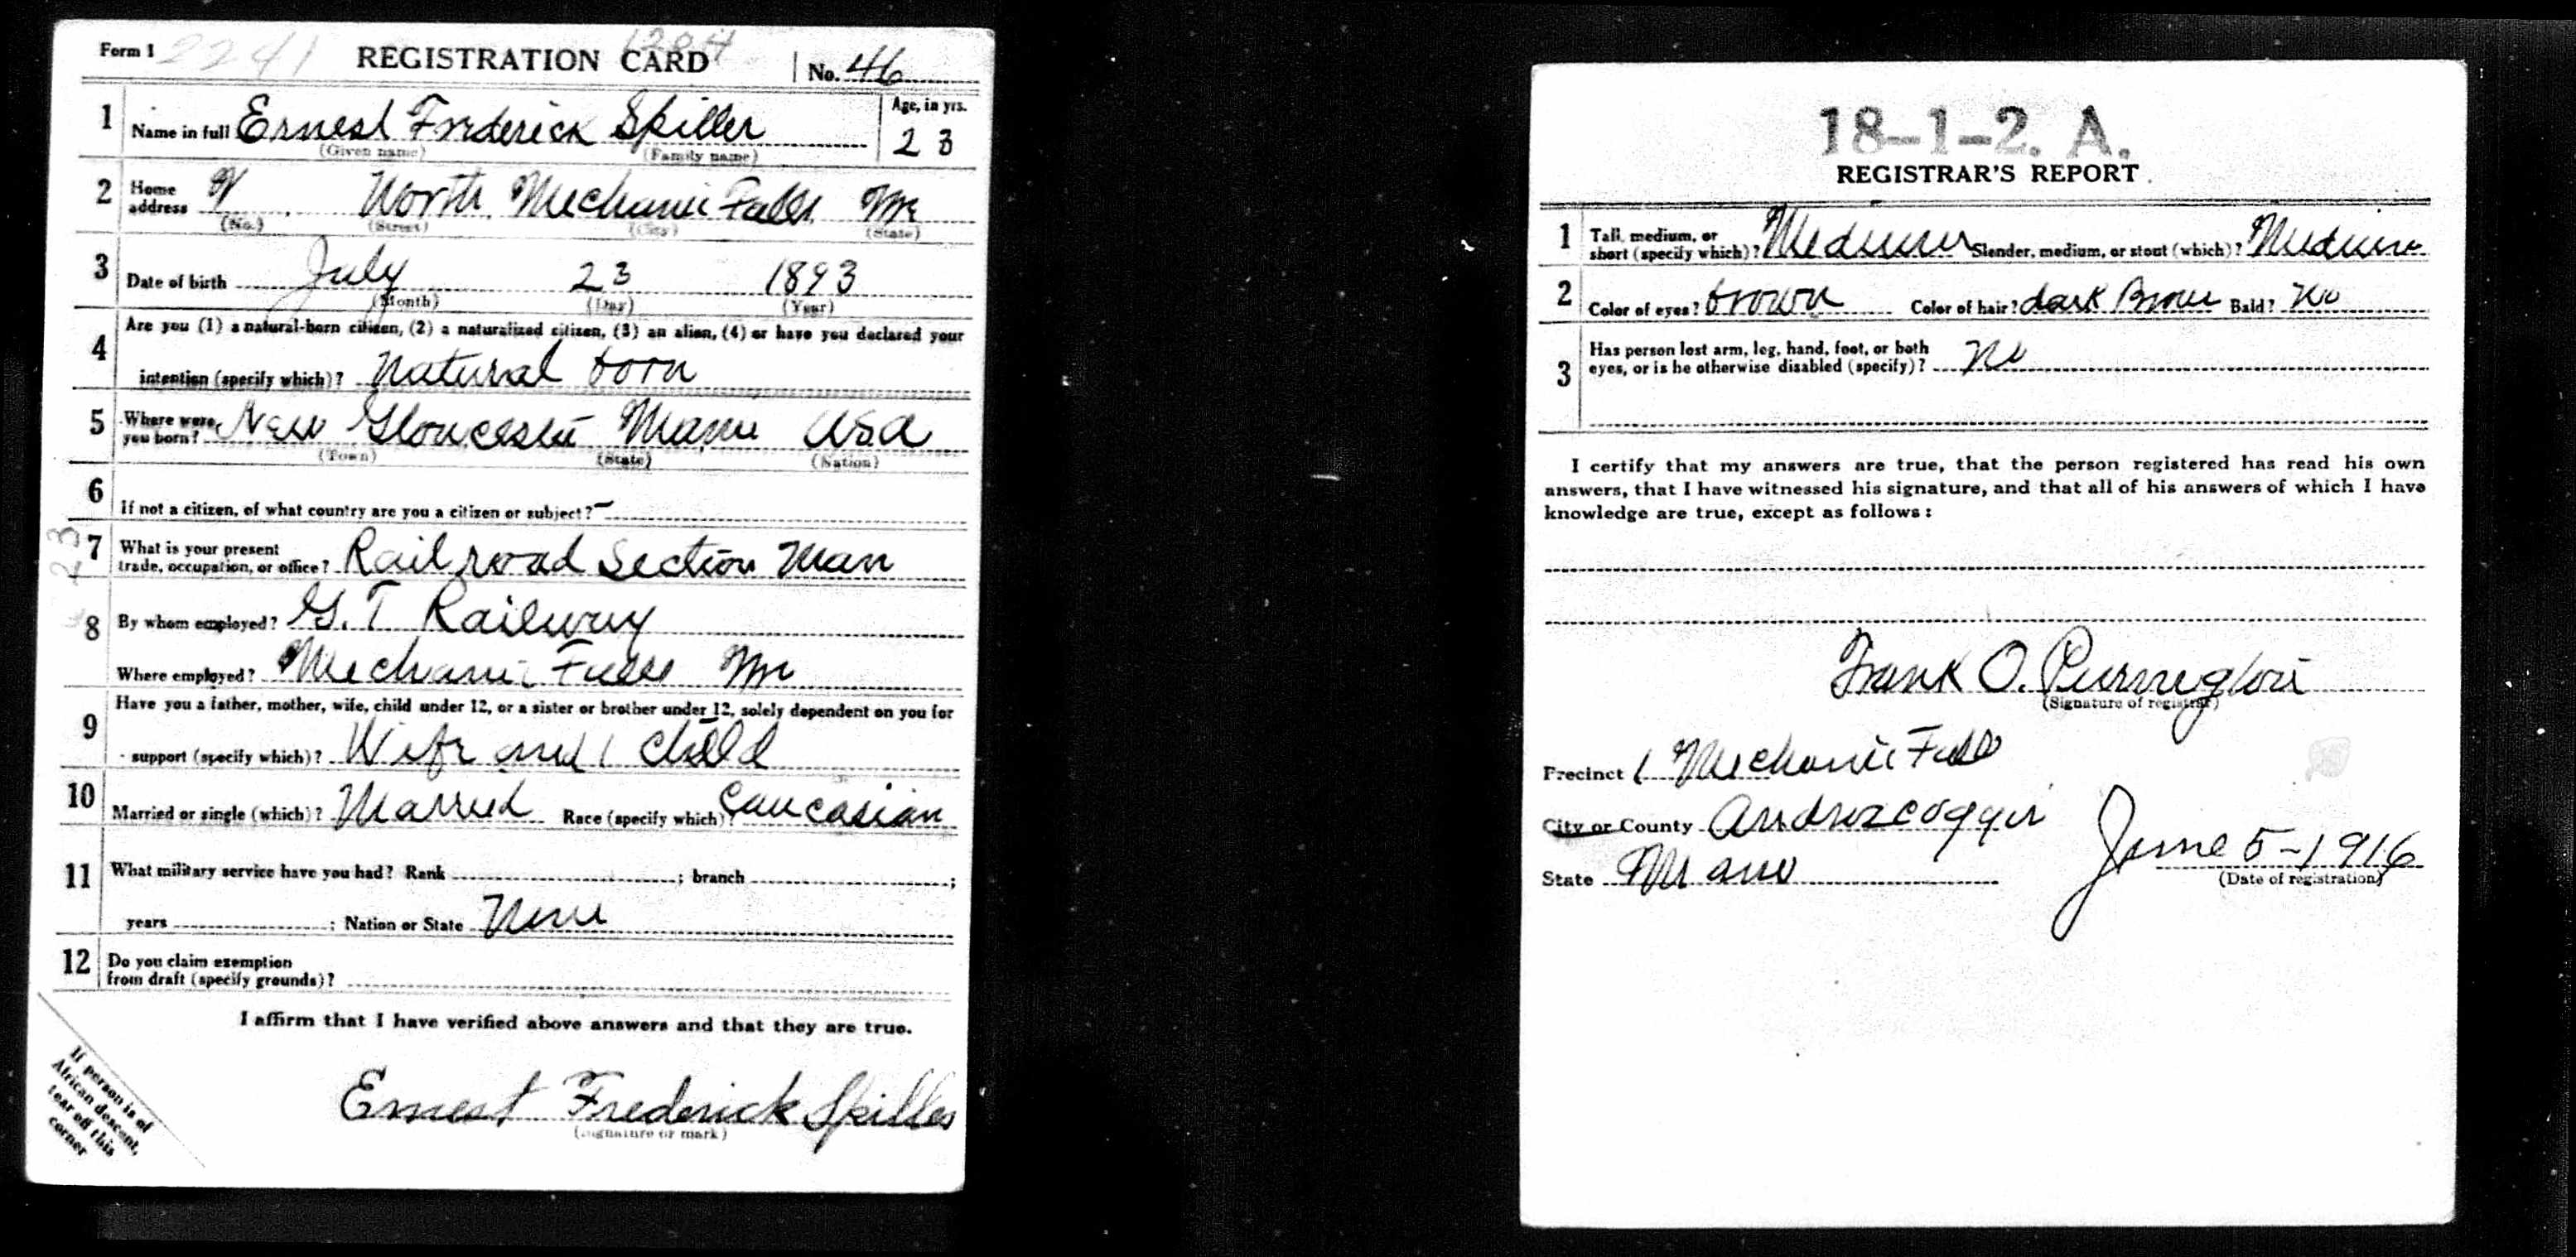 Form 1 2241 REGISTRATION CARD 1204 No. 46
1 Name in full Ernest Frederick Spiller Age, in yrs.
(Given name) (Family name) 23
2 Home address North Mechanic Falls Me
(No.) (Street) (City) (State)
3 Date of birth July 23 1893
(Month) (Day) (Year)
4 Are you (1) a natural-born citizen, (2) a naturalized citizen, (3) an alien, (4) or have you declared your
intention (specify which)? Natural born
5 Where were you born? New Gloucester Maine USA
(Town) (State) (Nation)
6 If not a citizen, of what country are you a citizen or subject? -
23
7 What is your present
trade, occupation, or office? Rail road Section Man
8 By whom employed? G. T Railway
Where employed? Mechanic Falls Me
9 Have you a father, mother, wife, child under 12, or a sister or brother under 12, solely dependent on you for
support (specify which)? Wife and 1 child
10 Married or single (which)? Married Race (specify which)? Caucasian
11 What military service have you had? Rank ; branch ;
years ; Nation or State None
12 Do you claim exemption
from draft (specify grounds)?
I affirm that I have verified above answers and that they are true.
Ernest Frederick Spiller
(Signature or mark)
If person is of
African descent,
tear off this
corner
18-1-2. A.
REGISTRAR'S REPORT
1 Tall, medium, or
short (specify which)? Medium Slender, medium, or stout (which)? Medium
2 Color of eyes? brown Color of hair? dark Brown Bald? No
3 Has person lost arm, leg, hand, foot, or both
eyes, or is he otherwise disabled (specify)? No
I certify that my answers are true, that the person registered has read his own
answers, that I have witnessed his signature, and that all of his answers of which I have
knowledge are true, except as follows:
Frank O.
(Signature of registrar)
Precinct 1 Mechanic Falls
City or County Androscoggin
State Maine June 5-1916
(Date of registration)